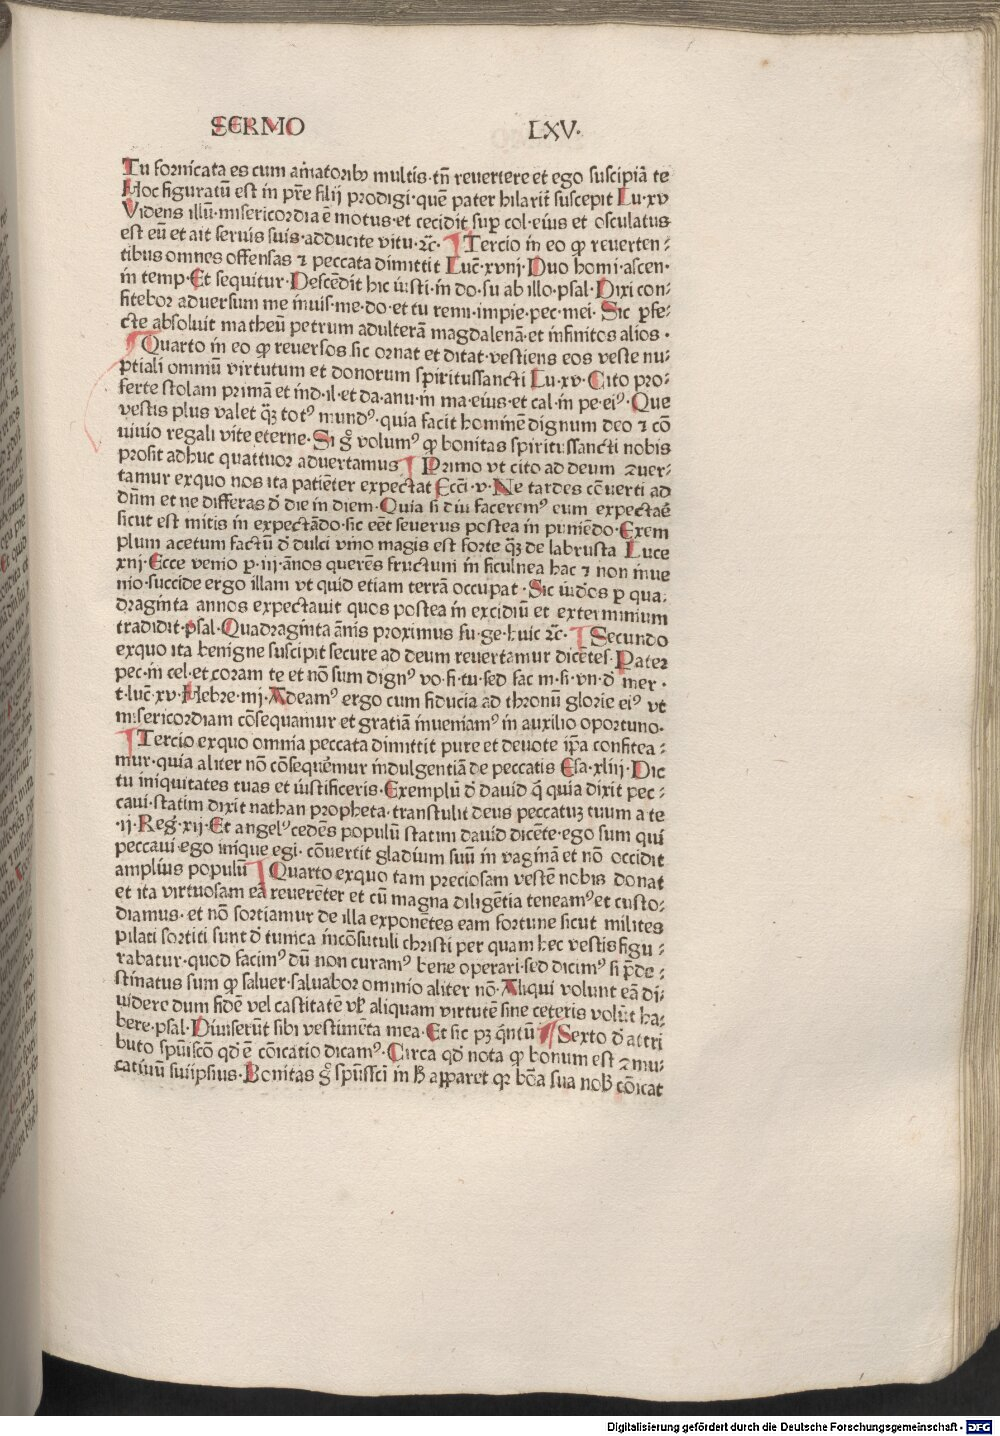 SERMO LXV·
Tu fornicata es cum amatoribꝰ multis·tn̄ reuertere et ego suscipiā te
Hoc figuratū est in pr̄e filij prodigi·quē pater hilarit̄ suscepit Lu·xv
Videns illū·misericordia ē motus·et cecidit suꝑ col·eius et osculatus
est eū et ait seruis suis·adducite vitu·⁊c̄· ¶ Tercio in eo ꝙ reuerten⸗
tibus omnes offensas ⁊ peccata dimittit Luc̄·xvnj·Duo homi·ascen·
in temp·Et sequitur·Descēdit hic iusti·in do·su ab illo·psal·Dixi con⸗
fitebor aduersum me iniusi·me·do·et tu remi·impie·pec·mei· Sic ꝑfe⸗
cte absoluit matheū petrum adulterā magdalenā·et infinitos alios·
¶ Quarto in eo ꝙ reuersos sic ornat et ditat·vestiens eos veste nu⸗
ptiali omniū virtutum et donorum spiritussancti Lu·xv·Cito pro⸗
ferte stolam primā et ind·il·et da·anu·in ma·eius·et cal·in pe·eiꝰ·Que
vestis plus valet ꝙ̄ totꝰ mundꝰ·quia facit hominē dignum deo ⁊ cō
uiuio regali vite eterne·Si gͦ volumꝰ ꝙ bonitas spiritussancti nobis
prosit adhuc quattuor aduertamus ¶ Primo vt cito ad deum ꝛuer⸗
tamur exquo nos ita patiēter expectat Ecc̄i·v·Ne tardes cōuerti ad
dn̄m et ne differas đ die in diem·Quia si diu faceremꝰ eum expectaē
sicut est mitis in expectādo·sic eēt seuerus postea in puniēdo·Exem
plum acetum factū đ dulci vino magis est forte ꝙ̄ de labrusta Luce
xnj·Ecce venio ꝑ·iij·ānos querēs fructum in ficulnea hac ⁊ non inue
nio·succide ergo illam vt quid etiam terrā occupat·Sic iud̄os ꝑ qua⸗
draginta annos expectauit quos postea in excidiū et exterminium
tradidit·psal·Quadraginta ānis proximus fu·ge·huic ⁊c̄· ¶ Secundo
exquo ita benigne suscipit secure ad deum reuertamur dicētes·Pater
pec·in cel·et coram te et nō sum dignꝰ vo·fi·tu·sed fac m·si·vn·đ mer·
t·luc̄ xv·Hebre·iiij·Adeamꝰ ergo cum fiducia ad thronū glorie eiꝰ vt
misericordiam cōsequamur et gratiā inueniamꝰ in auxilio oportuno·
¶ Tercio exquo omnia peccata dimittit pure et deuote ip̄a confitea⸗
mur·quia aliter nō cōsequemur indulgentiā de peccatis Esa·xliij·Dic
tu iniquitates tuas et iustificeris·Exemplū đ dauid q̄ quia dixit pec⸗
caui·statim dixit nathan propheta·transtulit deus peccatuꝫ tuum a te
·ij·Reḡ·xij·Et angelꝰ cedēs populū statim dauid dicēte·ego sum qui
peccaui·ego inique egi·cōuertit gladium suū in vaginā et nō occidit
amplius populū ¶ Quarto exquo tam preciosam vestē nobis donat
et ita virtuosam eā reuerēter et cū magna diligētia teneamꝰ et custo⸗
diamus·et nō sortiamur de illa exponētes eam fortune sicut milites
pilati sortiti sunt đ tunica incōsutuli christi per quam hec vestis figu⸗
rabatur·quod facimꝰ dū non curamꝰ bene operari·sed dicimꝰ si p̄de⸗
stinatus sum ꝙ saluer·saluabor omnio aliter nō·Aliqui volunt eā di⸗
uidere dum fidē vel castitatē vl̓ aliquam virtutē sine ceteris volūt ha⸗
bere·psal·Diuiserūt sibi vestimēta mea·Et sic pꝫ q̄ntū ¶ Sexto đ attri
buto spūiscō qđ ē cōicatio dicamꝰ·Circa qđ nota ꝙ bonum est ꝛmu⸗
catiuū suiipsius·Bonitas gͦ spūssci in ħ apparet qꝛ bōa sua nob̄ cōicat
Digitalisierung gefördert durch die Deutsche Forschungsgemeinschaft - DFG